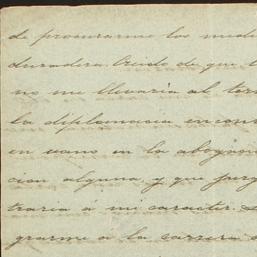 de procurarme los medi
duradera. Creido de que l
no me llevaria al ter
la diplomacia encont
en vano en la aboga
cion alguna, y que juzg
traria á mi caracter.
grarme á la carrera